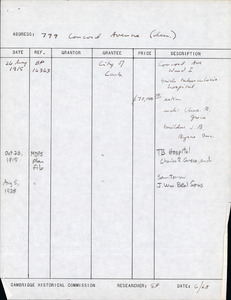 ADDRESS: 779 Concord Avenue (dem.)
DATE REF. GRANTOR GRANTEE PRICE DESCRIPTION
26 Aug BP City of Concord Ave
1915 16363 Camb Ward 1
build tuberculosis
hospital
$70,000 estim
arch: Chas. R.
Greco
builder J. B.
Byrne
Oct. 23, MDPS TB Hospital
1915 plan Charles R. Greco, arch
file
Aug 5, Sanitorium
1928 J. Wm Beal Sons
CAMBRIDGE HISTORICAL COMMISSION RESEARCHER: SP DATE: 6/68